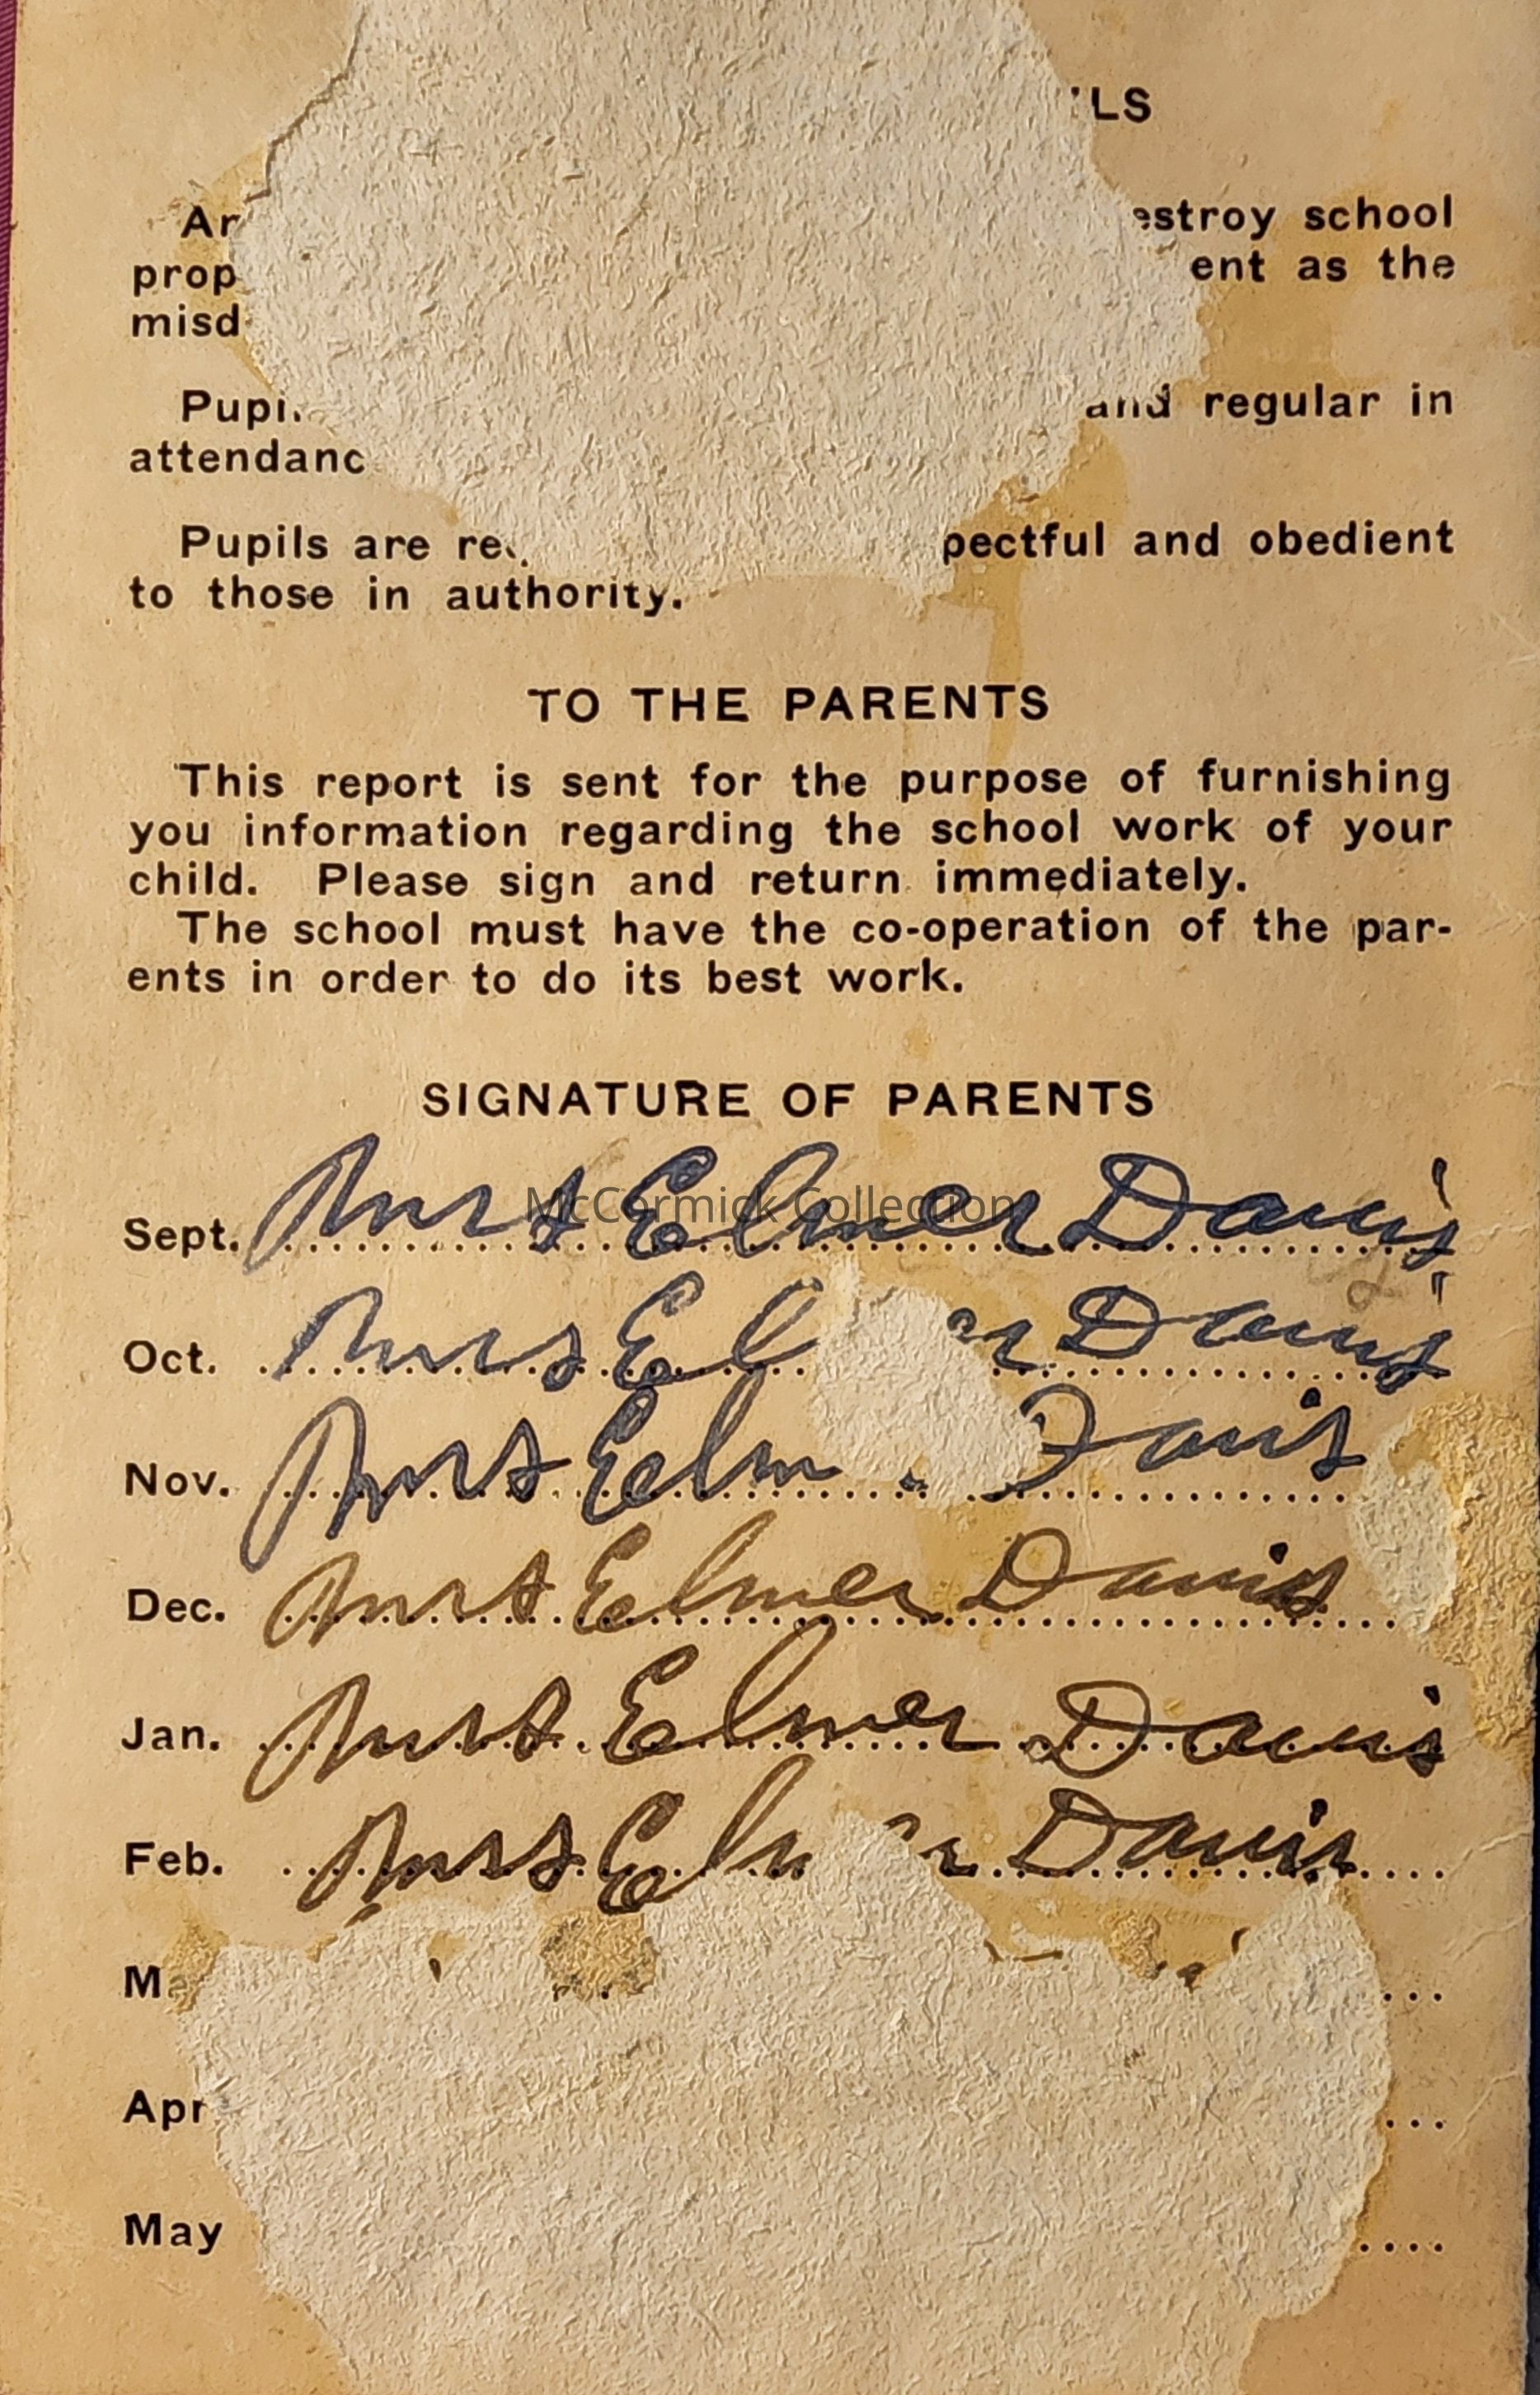 LS
Ar estroy school
prop ent as the
misd
Pupi and regular in
attendanc
Pupils are re pectful and obedient
to those in authority.
TO THE PARENTS
This report is sent for the purpose of furnishing
you information regarding the school work of your
child. Please sign and return immediately.
The school must have the co-operation of the par-
ents in order to do its best work.
SIGNATURE OF PARENTS
Sept. Mrs Elmer Davis
McCormick Collection
Oct. Mrs El er Davis
Nov. Mrs Elm Davis
Dec. Mrs Elmer Davis
Jan. Mrs Elmer Davis
Feb. Mrs Elm er Davis
Ma
Apr
May